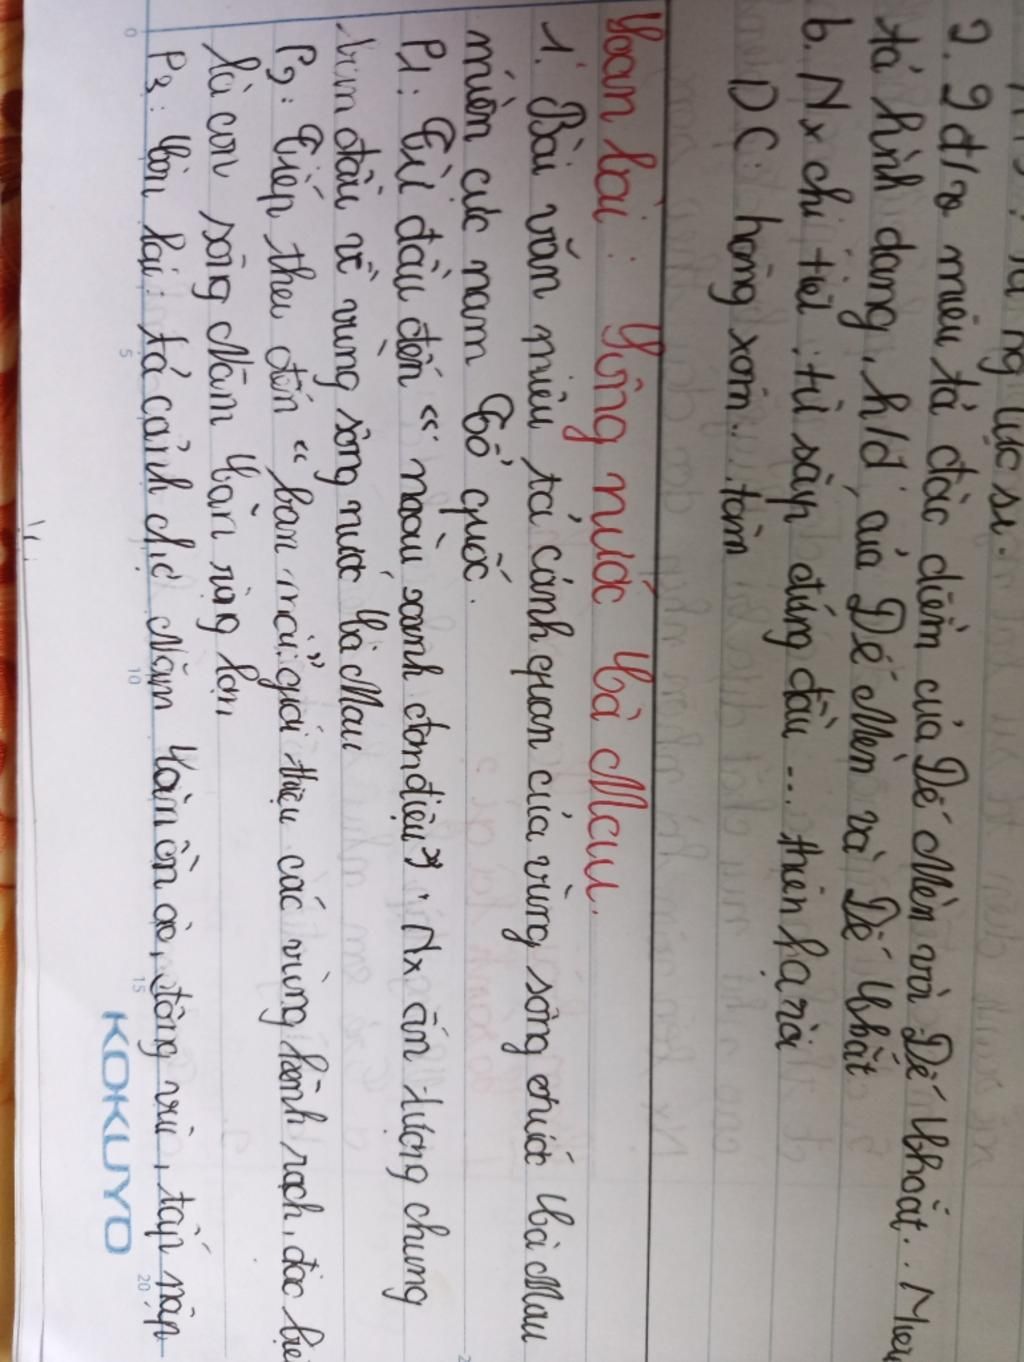 lực sĩ.
2. 2 đ/v miêu tả đặc điểm của Dế Mèn và Dế Choắt. Miêu
tả hình dáng, h/đ của Dế Mèn và Dế Choắt
b. Nx chi tiết: từ sáp đứng đầu... thiên hạ rồi
DC: hàng xóm... tôm
Đoạn lại: Sông nước Cà Mau.
1. Bài văn miêu tả cảnh quan của vùng sông nước Cà Mau
miền cực nam Tổ quốc.
P1: Từ đầu đến "màu xanh đơn điệu". Nx ấn tượng chung
ban đầu về vùng sông nước Cà Mau
P2: Tiếp theo đến "ban mai" giới thiệu các vùng kênh rạch, đặc biệ
là con sông Năm Căn rộng lớn
P3: Còn lại: tả cảnh chợ Năm Căn ồn ào, đông vui, tấp nập
KOKUYO
0 5 10 15 20